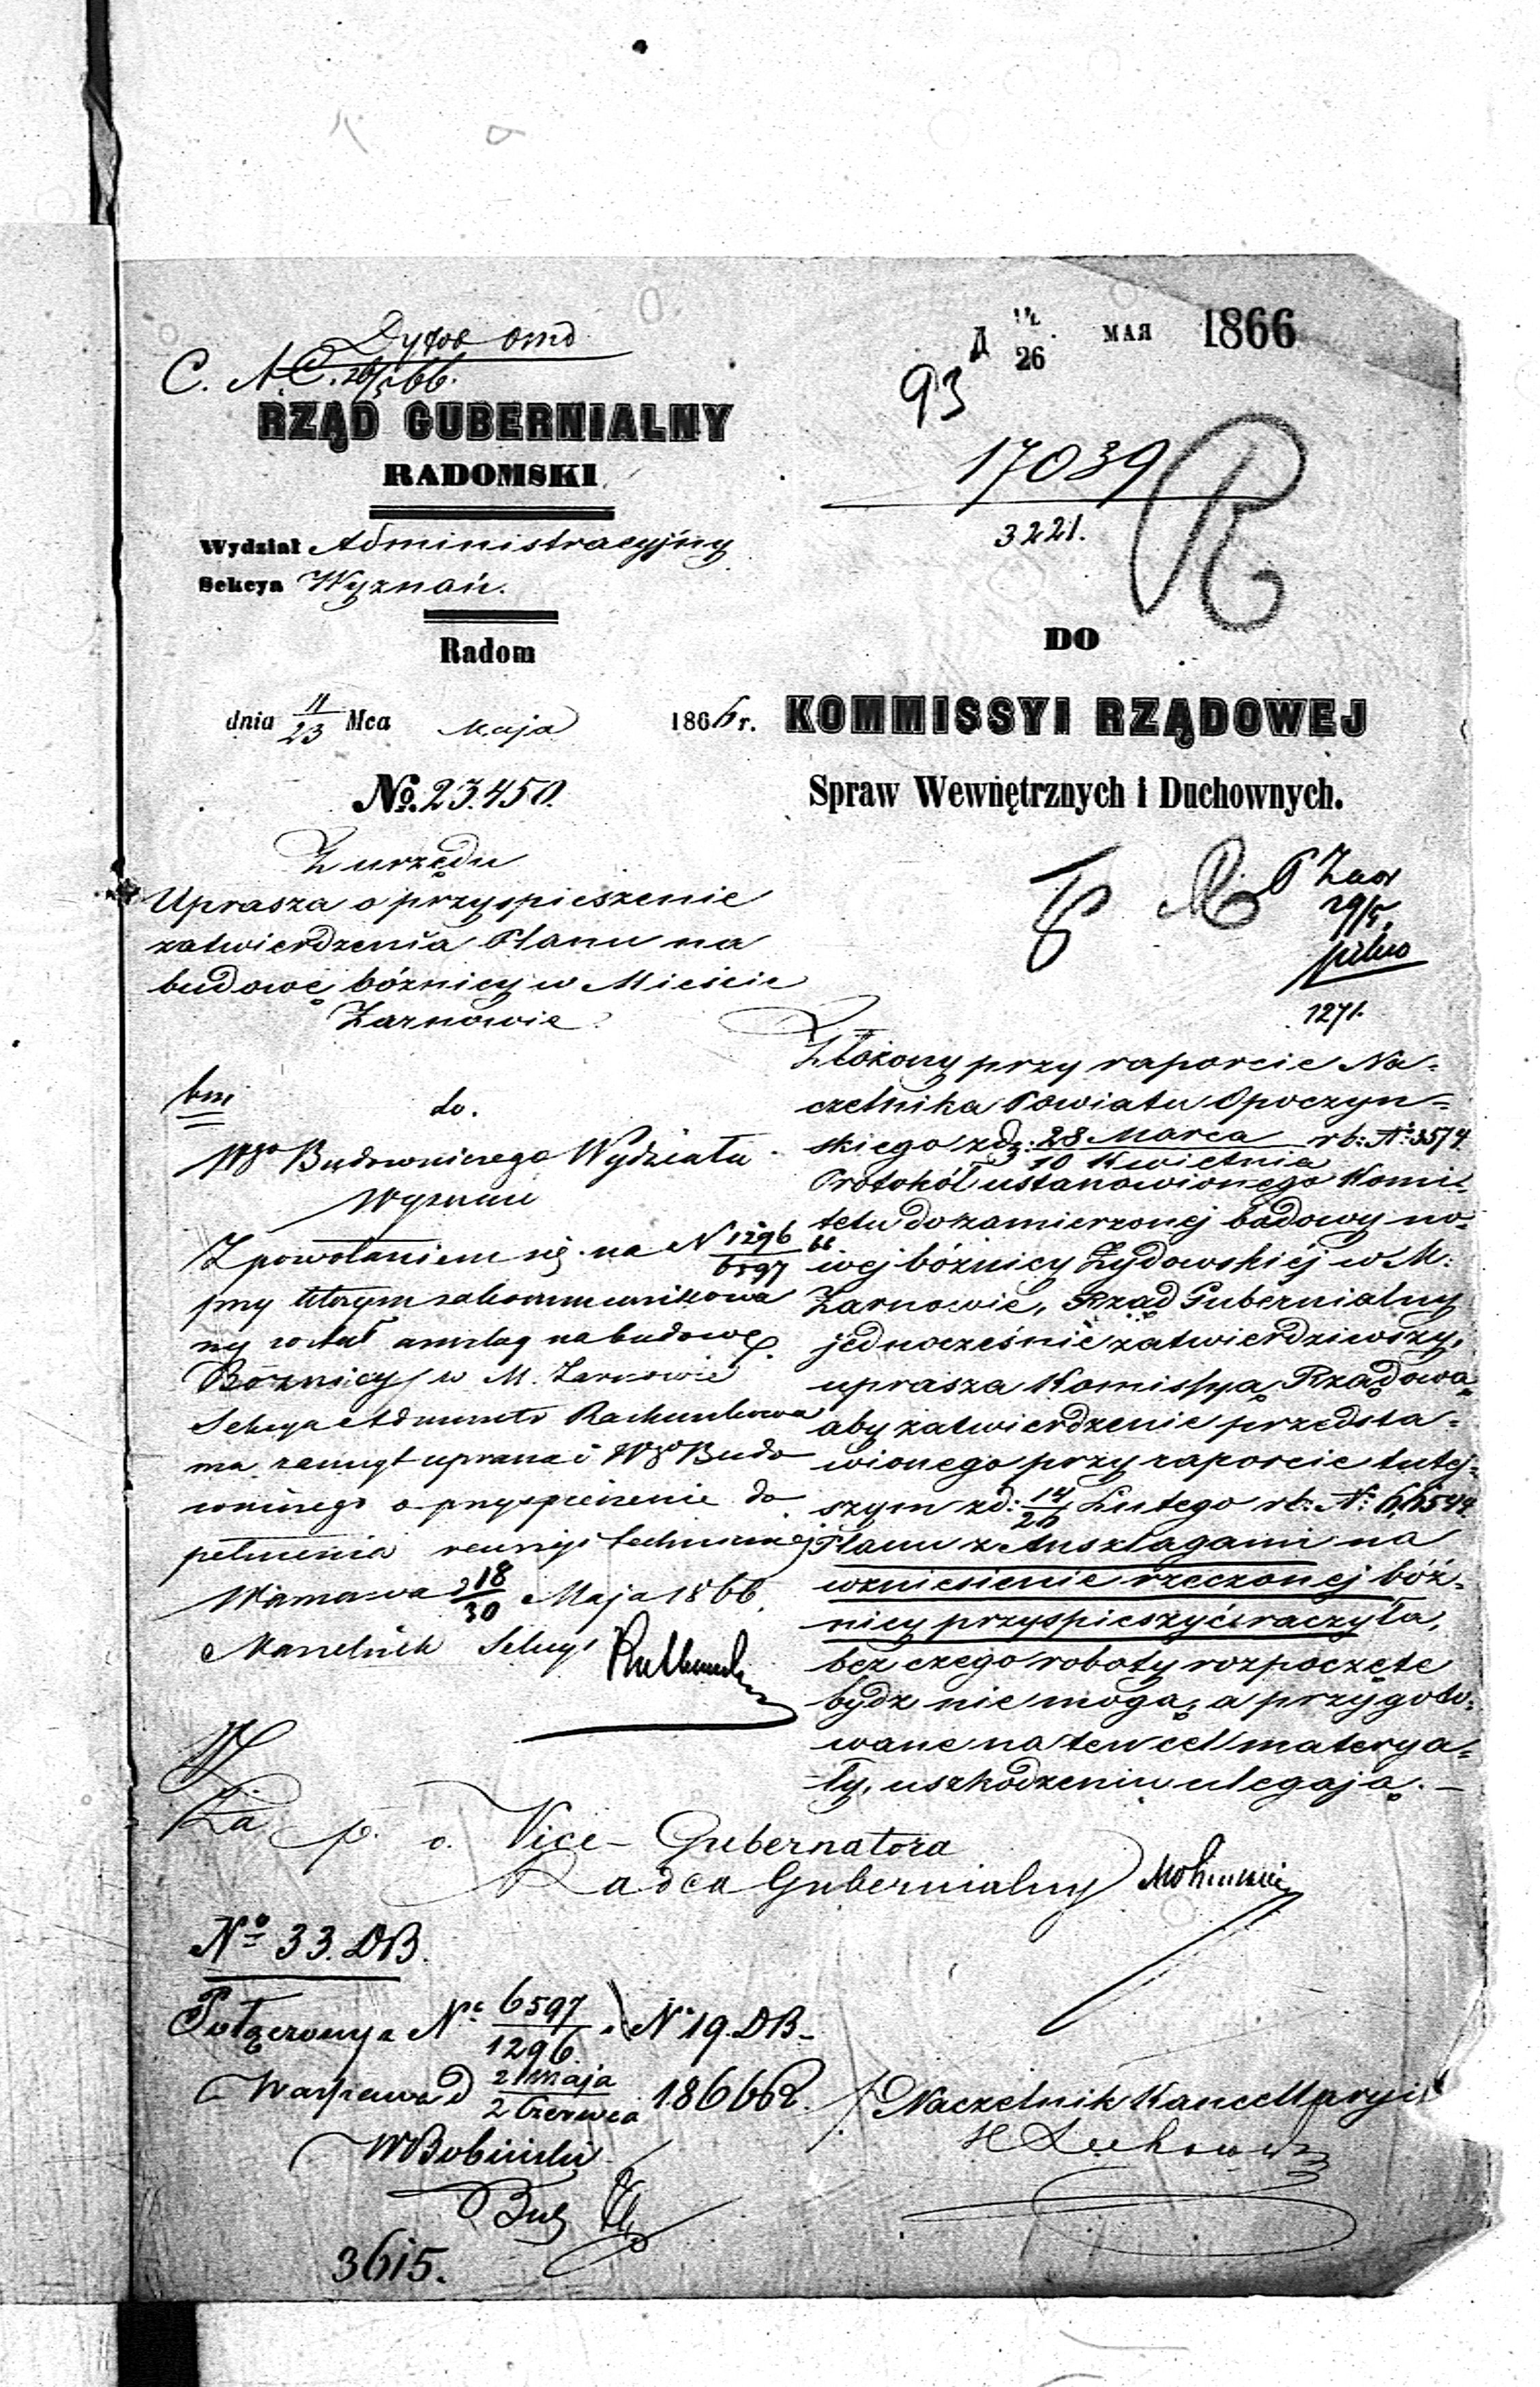 14/26 МАЯ 1866
93
17039
3221.
C. A. C. 26/5 66.
RZĄD GUBERNIALNY
RADOMSKI
Wydział Administracyjny
Sekcya Wyznań.
Radom
dnia 11/23 Mca Maja 1866 r.
No. 23.450.
Z urzędu
Uprasza o przyspieszenie
zatwierdzenia Planu na
budowę bóżnicy w Mieście
Żarnowie
DO
KOMMISSYI RZĄDOWEJ
Spraw Wewnętrznych i Duchownych.
29/5
pilno
1271.
Złożony przy raporcie Na-
czelnika Powiatu Opoczyń-
skiego z d: 28 Marca / 10 Kwietnia rb: No: 3574.
Protokół ustanowionego Komi-
tetu do zamierzonej budowy no-
wej bóżnicy Żydowskiéj w M:
Żarnowie, Rząd Gubernialny
jednocześnie zatwierdziwszy,
uprasza Komissyą Rządową
aby zatwierdzenie przedsta-
wionego przy raporcie tutej-
szym z d: 14/26 Lutego rb: No:
Planu z Anszlagami na
wzniesienie rzeczonej bóż-
nicy przyspieszyć raczyła,
bez czego roboty rozpoczęte
bydź nie mogą, a przygoto-
wane na ten cel materya-
ły, uszkodzeniu ulegają. —
do.
Wgo Budowniczego Wydziału
Wyznań
Z powołaniem się na N 1296/6597 66.
przy którym zakommunikowa
ny został anszlag na budowę
Bóżnicy w M. Żarnowie
Sekcya Rachunkowa
ma zaszczyt upraszać Wgo Budo
wniczego o przyspieszenie do
pełnienia rewizyi technicznej.
Warszawa d 18/30 Maja 1866.
Naczelnik Sekcyi
Za p. o. Vice-Gubernatora
Radca Gubernialny
No 33. DB.
Połączony z No 6597/1296 i N 19. DB.
Warszawa d 21 maja / 2 Czerwca 1866 r.
Naczelnik Kancellaryi
3615.